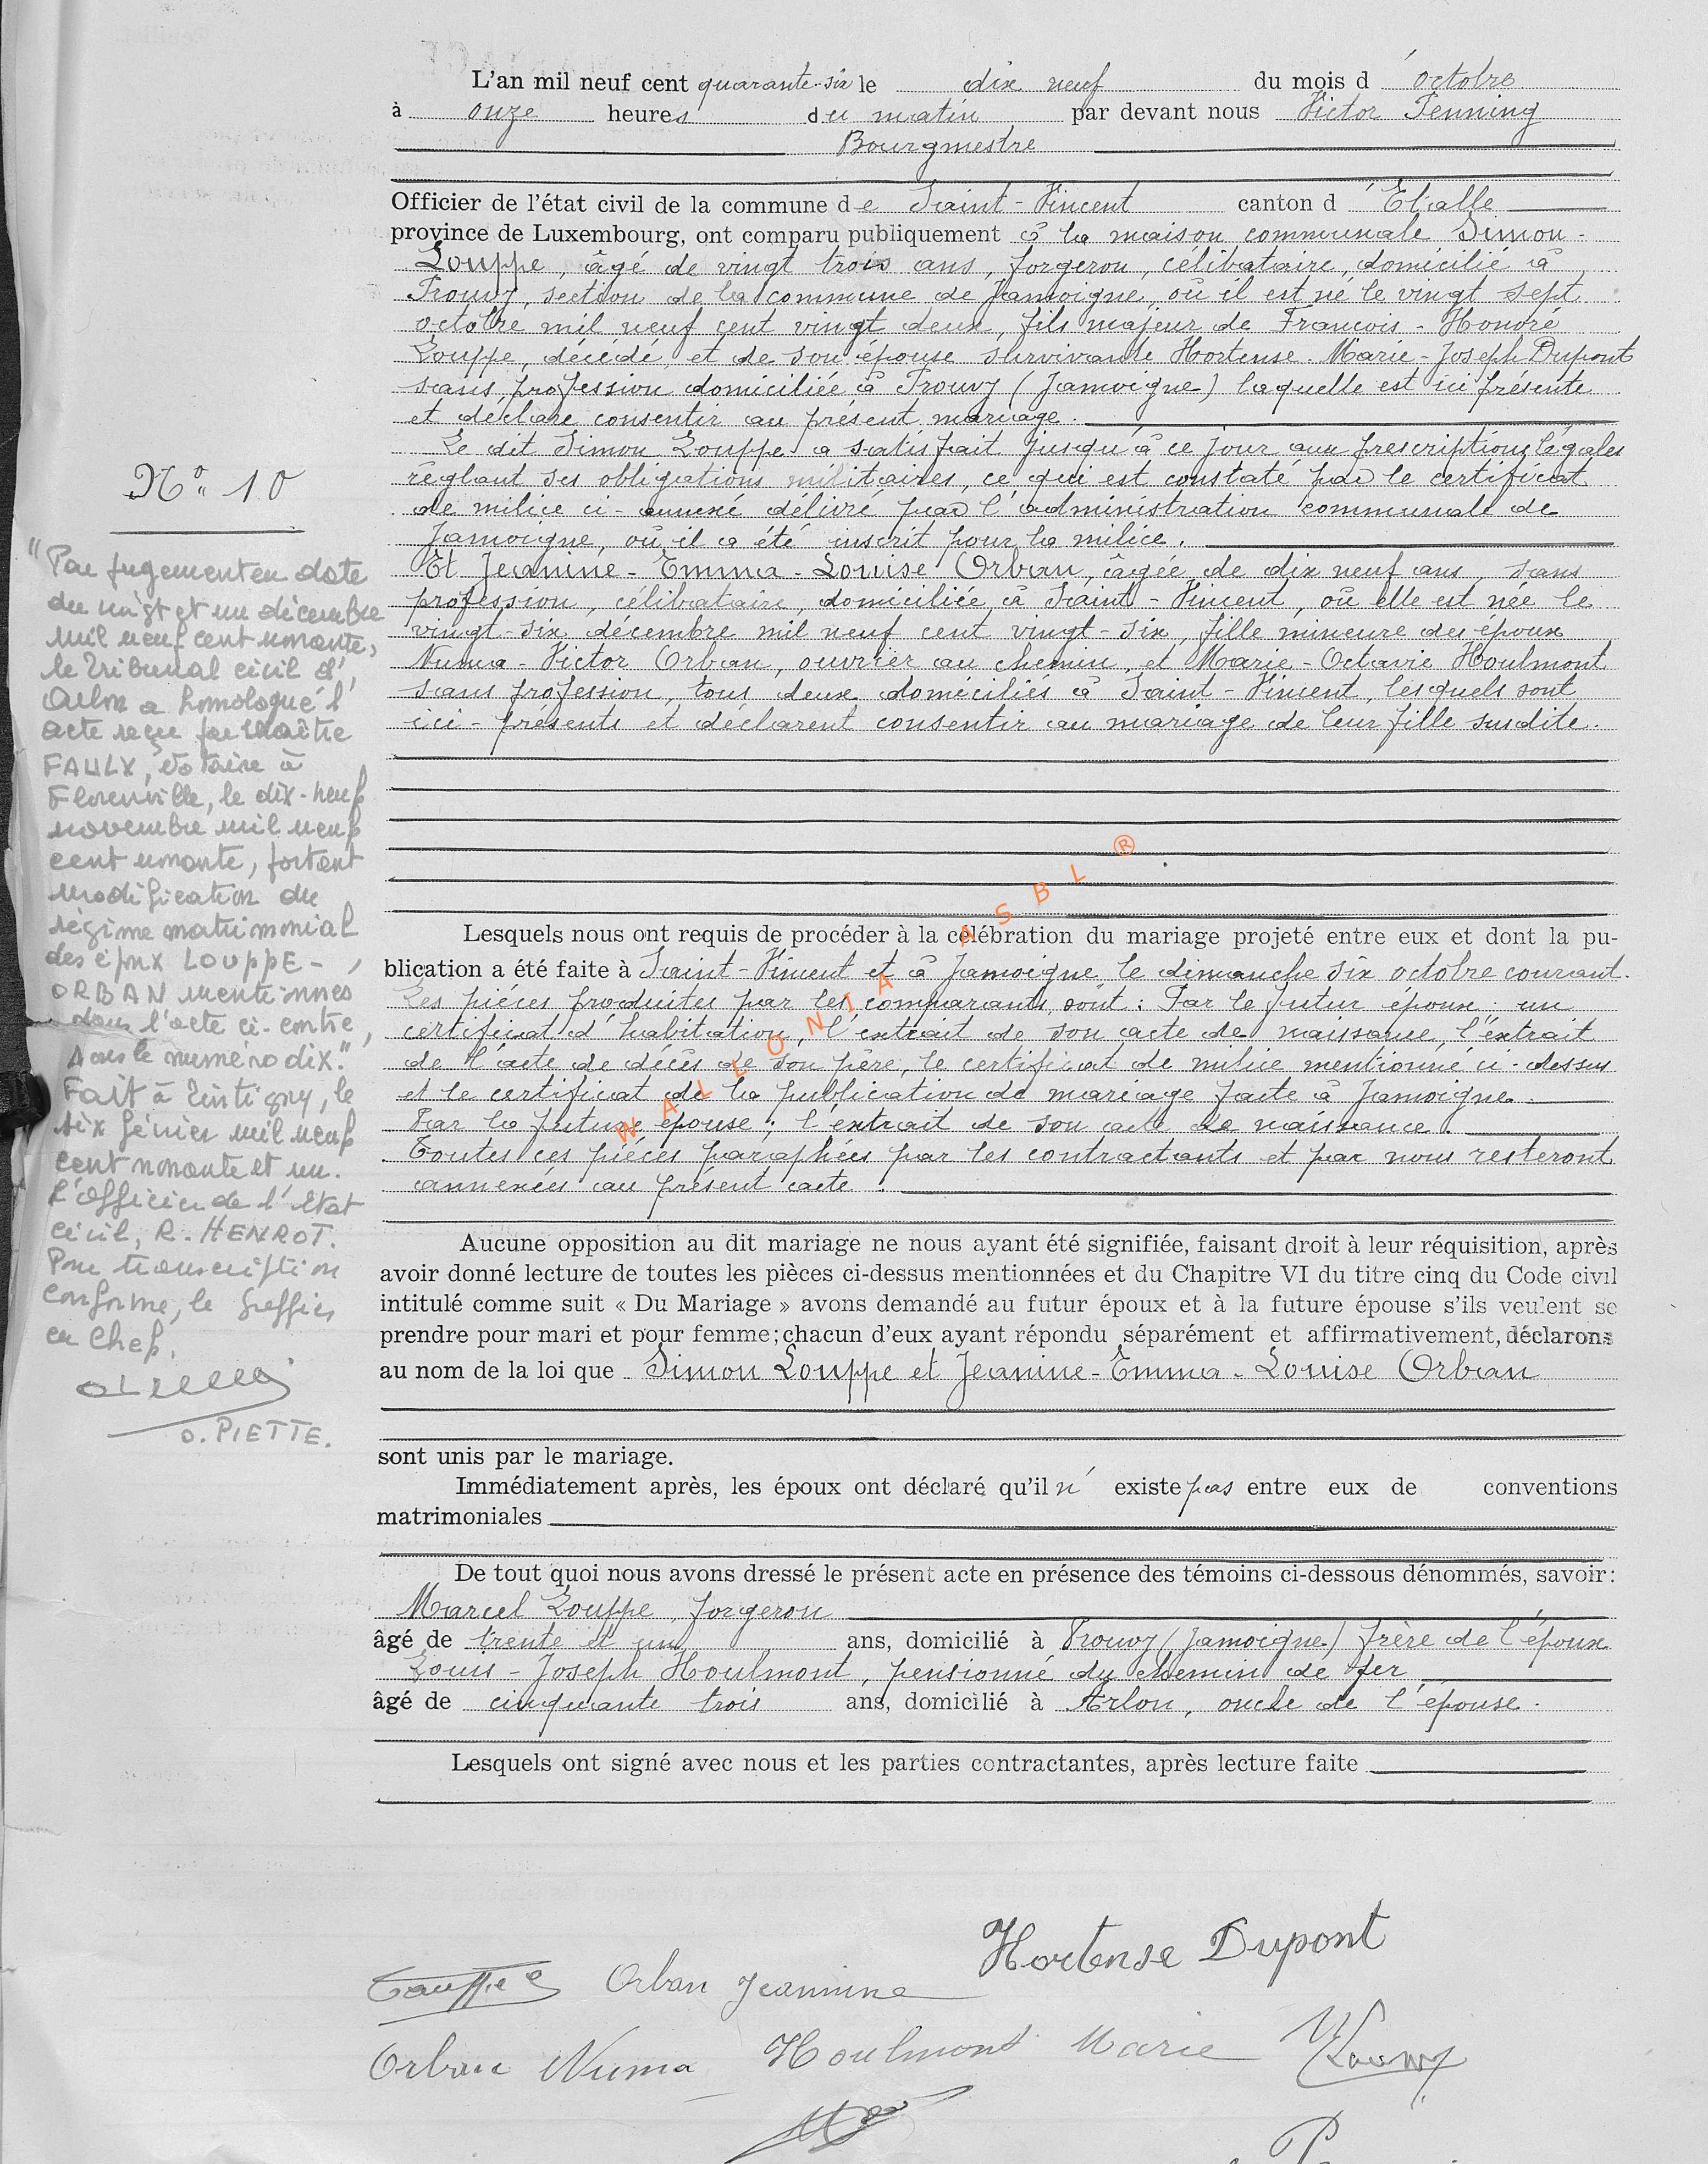 L'an mil neuf cent quarante-six le dix neuf du mois d'octobre
à onze heures du matin par devant nous Victor Fenning
Bourgmestre
Officier de l'état civil de la commune de Saint-Vincent canton d'Etalle
province de Luxembourg, ont comparu publiquement à la maison communale Simon-
Louppe, âgé de vingt trois ans, forgeron, célibataire, domicilié à
Prouvy, section de la commune de Jamoigne, où il est né le vingt sept
octobre mil neuf cent vingt deux, fils majeur de François-Honoré
Louppe, décédé, et de son épouse survivante Hortense-Marie-Joseph Dupont
sans profession domiciliée à Prouvy (Jamoigne) laquelle est ici présente
et déclare consentir au présent mariage.
Le dit Simon Louppe a satisfait jusqu'à ce jour aux prescriptions légales
réglant ses obligations militaires, ce qui est constaté par le certificat
de milice ci-annexé délivré par l'administration communale de
Jamoigne, où il a été inscrit pour la milice.
Et Jeanine-Emma-Louise Orban, âgée de dix neuf ans, sans
profession, célibataire, domiciliée à Saint-Vincent, où elle est née le
vingt-six décembre mil neuf cent vingt-six, fille mineure des époux
Numa-Victor Orban, ouvrier au chemin, et Marie-Octavie Houlmont
sans profession, tous deux domiciliés à Saint-Vincent, lesquels sont
ici-présents et déclarent consentir au mariage de leur fille susdite.
Lesquels nous ont requis de procéder à la célébration du mariage projeté entre eux et dont la pu-
blication a été faite à Saint-Vincent et à Jamoigne le dimanche six octobre courant.
Les pièces produites par les comparants sont : Par le futur époux : un
certificat d'habitation, l'extrait de son acte de naissance, l'extrait
de l'acte de décès de son père, le certificat de milice mentionné ci-dessus
et le certificat de la publication de mariage faite à Jamoigne.
Par la future épouse ; l'extrait de son acte de naissance.
Toutes ces pièces paraphées par les contractants et par nous resteront
annexées au présent acte.
Aucune opposition au dit mariage ne nous ayant été signifiée, faisant droit à leur réquisition, après
avoir donné lecture de toutes les pièces ci-dessus mentionnées et du Chapitre VI du titre cinq du Code civil
intitulé comme suit « Du Mariage » avons demandé au futur époux et à la future épouse s'ils veulent se
prendre pour mari et pour femme; chacun d'eux ayant répondu séparément et affirmativement, déclarons
au nom de la loi que Simon Louppe et Jeanine-Emma-Louise Orban
sont unis par le mariage.
Immédiatement après, les époux ont déclaré qu'il n'existe pas entre eux de conventions
matrimoniales
De tout quoi nous avons dressé le présent acte en présence des témoins ci-dessous dénommés, savoir:
Marcel Louppe, forgeron
âgé de trente et un ans, domicilié à Prouvy (Jamoigne) frère de l'époux
Louis-Joseph Houlmont, pensionné du chemin de fer
âgé de cinquante trois ans, domicilié à Arlon, oncle de l'épouse.
Lesquels ont signé avec nous et les parties contractantes, après lecture faite
Hortense Dupont
Orban Jeannine
Orban Numa Houlmont Marie
N° 10
"Par jugement en date
du vingt et un décembre
mil neuf cent nonante,
le Tribunal civil d'
Arlon a homologué l'
acte reçu par Maître
FAULX, Notaire à
Florenville, le dix-neuf
novembre mil neuf
cent nonante, portant
modification du
régime matrimonial
des époux LOUPPE-
ORBAN mentionnés
dans l'acte ci-contre,
sous le numéro dix."
Fait à Tintigny, le
six février mil neuf
cent nonante et un.
L'Officier de l'Etat
civil, R. HENROT.
Pour transcription
conforme, le Greffier
en Chef.
O. PIETTE.
WALLONIA ASBL ®